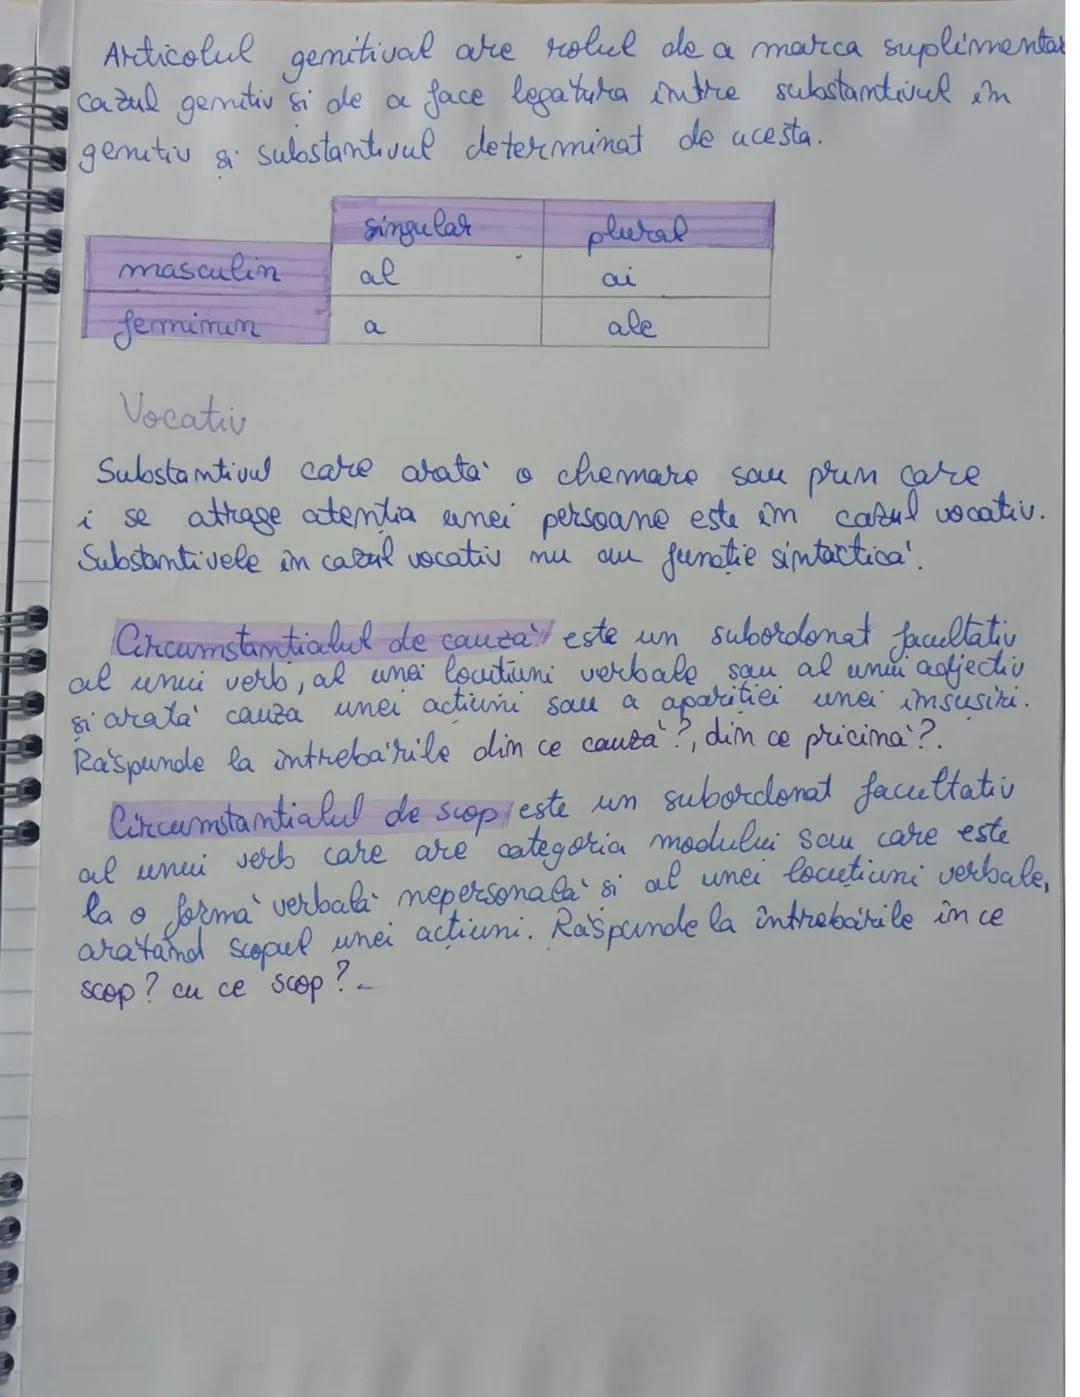 Articolul genitival are rolul de a marca suplimentar
cazul genitiv și de a face legatura între substantivul în
genitiv și substantivul determinat de acesta.
singular plural
masculin al ai
feminin a ale
Vocativ
Substantivul care arată o chemare sau prin care
i se atrage atentia unei persoane este în cazul vocativ.
Substantivele în cazul vocativ nu au funcție sintactică.
Circumstantialul de cauză este un subordonat facultativ
al unui verb, al unei locutiuni verbale sau al unui adjectiv
și arată cauza unei actiuni sau a aparitiei unei însusiri.
Răspunde la întrebările din ce cauză?, din ce pricină?.
Circumstantialul de scop este un subordonat facultativ
al unui verb care are categoria modului sau care este
la o formă verbală nepersonală și al unei locuțiuni verbale,
aratând scopul unei acțiuni. Răspunde la întrebările în ce
scop? cu ce scop?